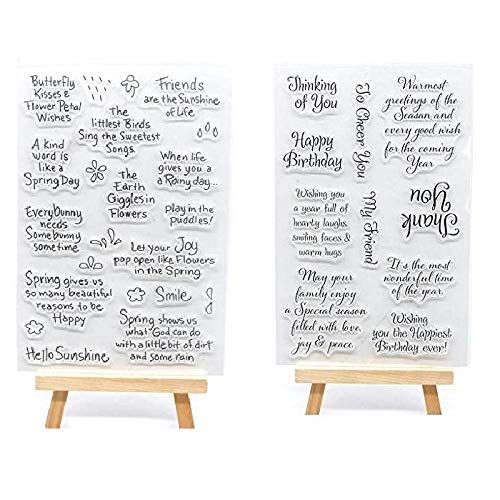 Butterfly
Kisses &
Flower Petal
Wishes
Friends
are the Sunshine
of Life
The
littlest Birds
Sing the Sweetest
Songs.
A kind
word is
like a
Spring Day
When life
gives you a
a Rainy day...
The
Earth
Giggles in
Flowers
Everybunny
needs
Somebunny
sometime
Play in the
puddles!
Let your Joy
pop open like Flowers
in the Spring.
Spring gives us
so many beautiful
reasons to be
Happy
Smile
Spring shows us
what God can do
with a little bit of dirt
and some rain
Hello Sunshine
Thinking
of You
To Cheer You
Warmest
greetings of the
Season and
every good wish
for the coming
Year
Happy
Birthday
Wishing you
a year full of
hearty laughs,
smiling faces &
warm hugs
My Friend
Thank
You
May your
family enjoy
a Special season
filled with love,
joy & peace.
It's the most
wonderful time
of the year.
Wishing
you the Happiest
Birthday ever!